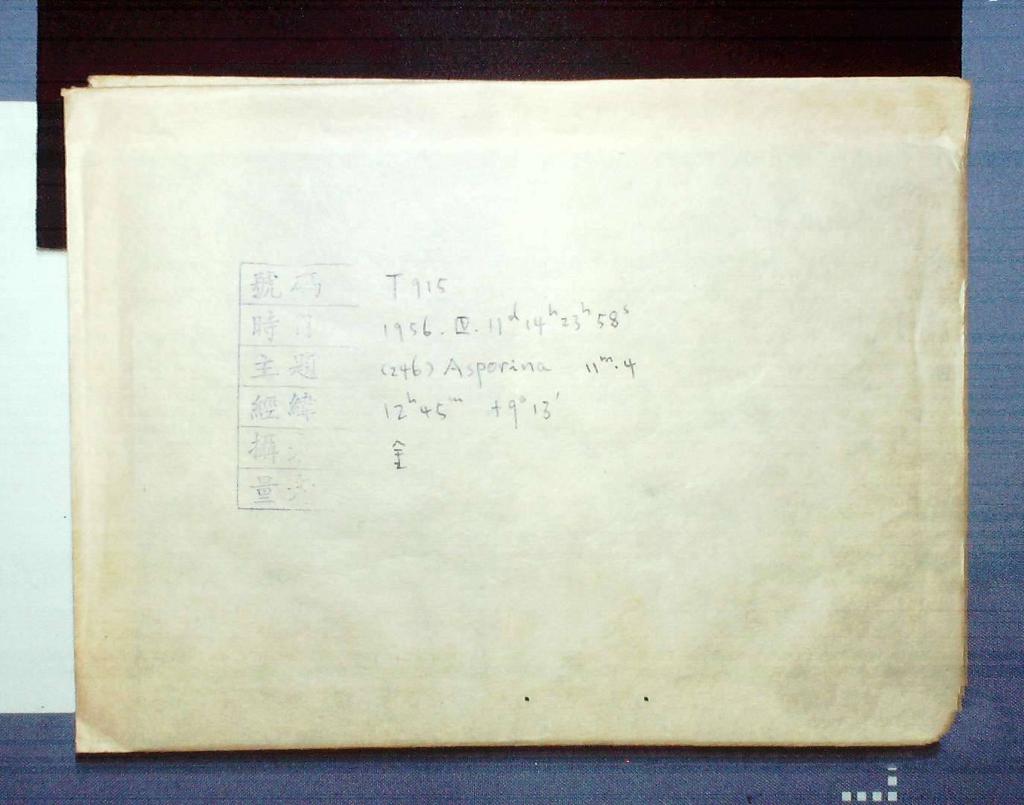 號碼 T915
時 1956.Ⅳ.11ᵈ14ʰ23ʰ58ˢ
主題 (246) Asporina 11ᵐ.4
經緯 12ʰ45ᵐ +9°13′
攝 金
量